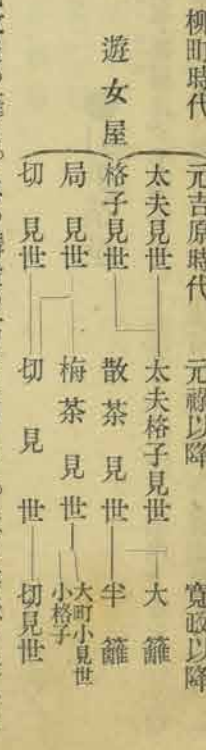 柳町時代 元吉原時代 元祿以降 寬政以降
遊女屋
太夫見世 太夫格子見世 大籬
格子見世 散茶見世 半籬
局見世 梅茶見世 大町小見世
小格子
切見世 切見世 切見世